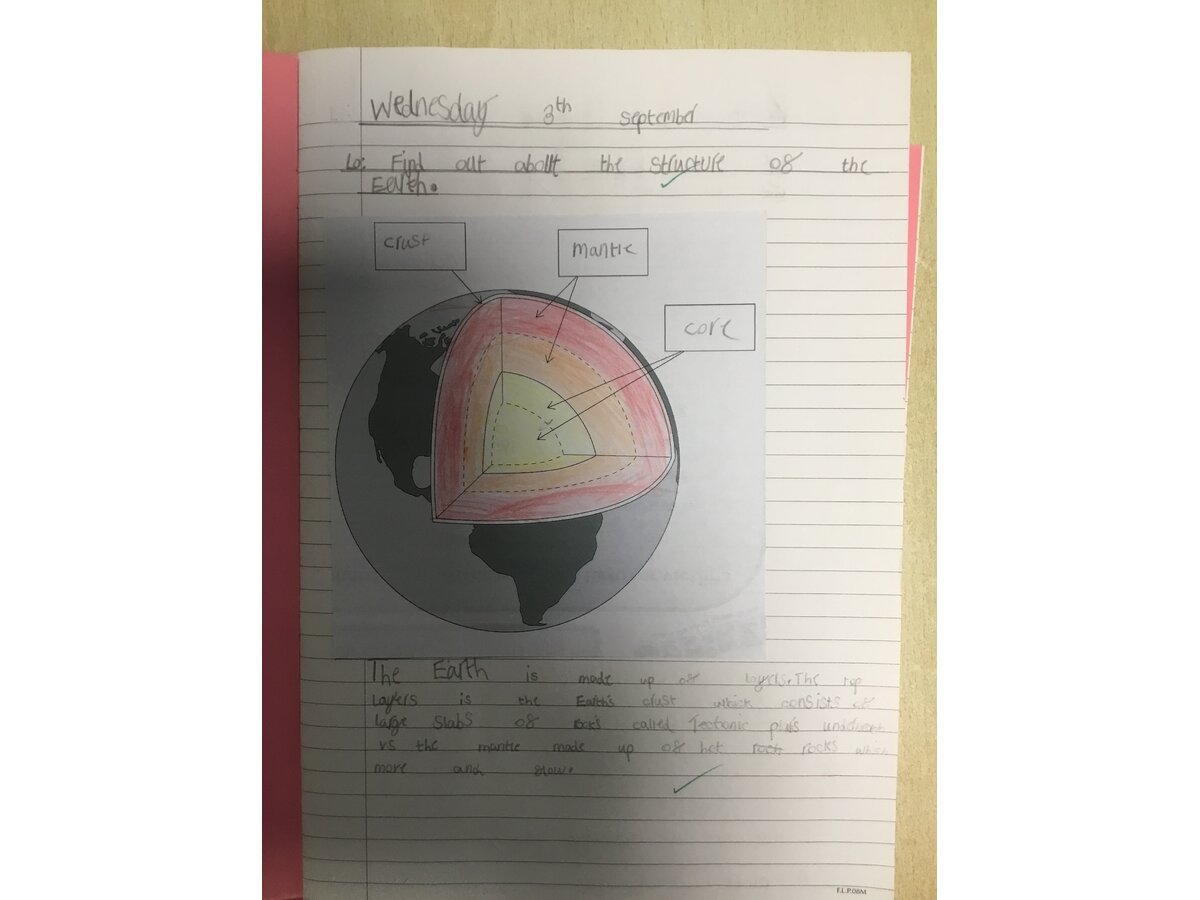 Wednesday 3th September
Lo: Find out about the structure of the
Earth.
crust
mantle
core
The Earth is made up of layers. The top
layers is the Earth's crust which consists of
large slabs of rocks called Tectonic plats underneath
is the mantle made up of hot rock rocks which
more and slow.
F.L.P.08M